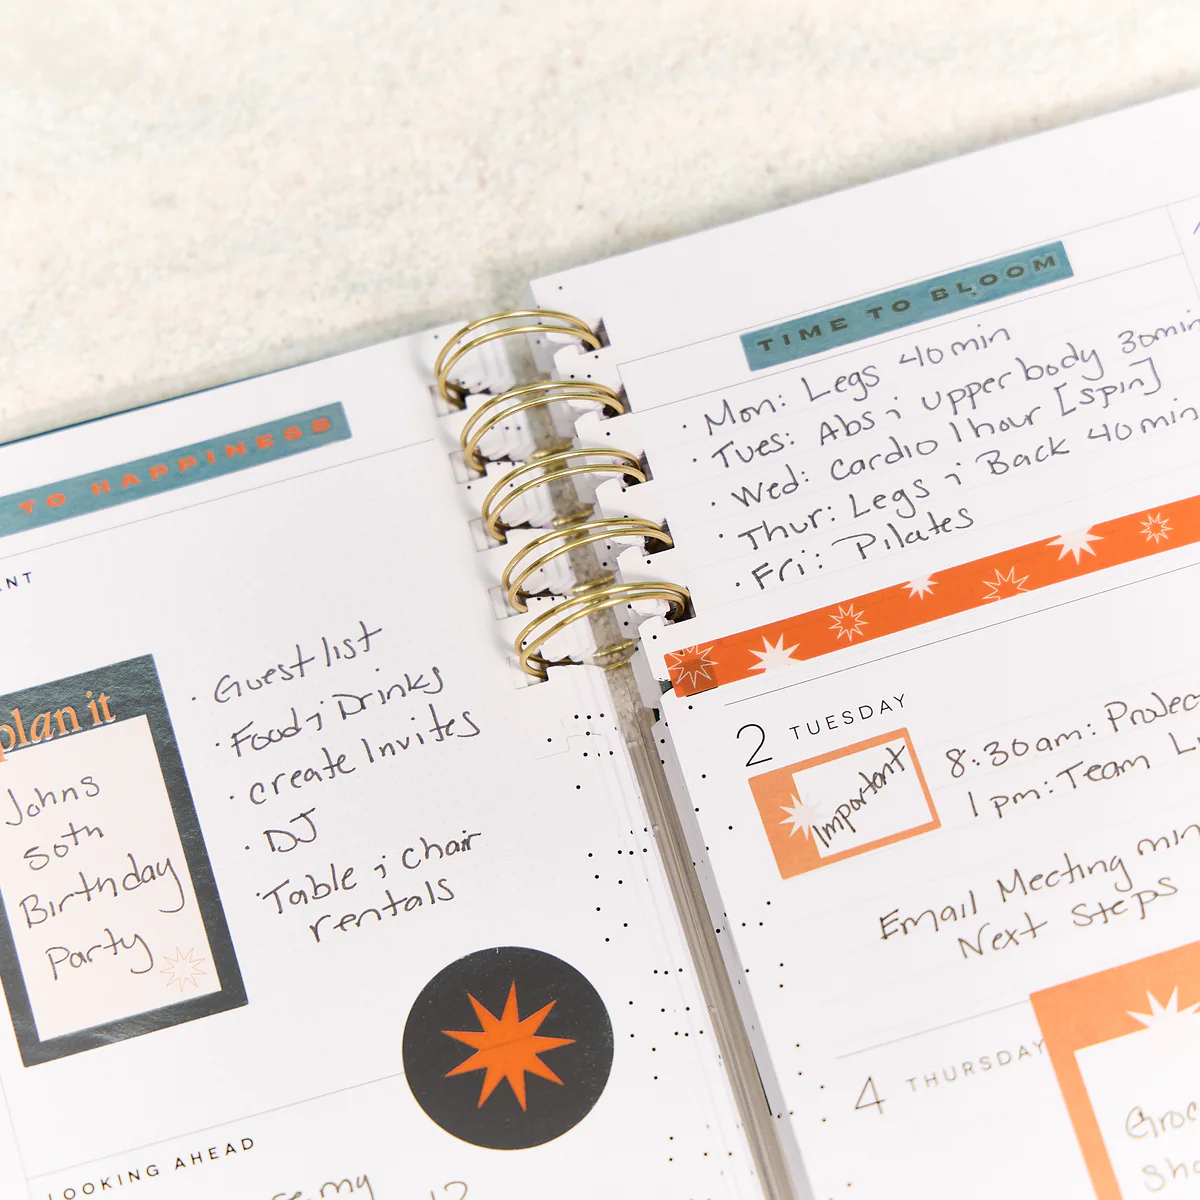 TO HAPPINESS
plan it
Johns
50th
Birthday
Party
· Guest list
· Food & Drinks
· create Invites
· DJ
· Table & chair
rentals
LOOKING AHEAD
my
TIME TO BLOOM
· Mon: Legs 40 min
· Tues: Abs & upper body 30min
· Wed: Cardio 1 hour [spin]
· Thur: Legs & Back 40 min
· Fri: Pilates
2 TUESDAY
Important
8:30am:
1pm: Team
Email Meeting
Next Steps
4 THURSDAY